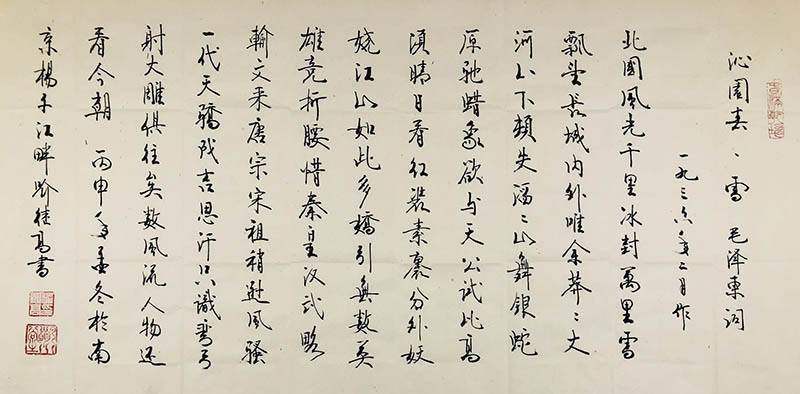 沁園春、雪 毛泽東词
一九三六年二月作
北國風光千里冰封萬里雪
飘望長城内外唯余莽〻大
河上下頓失滔〻山舞銀蛇
原驰蜡象欲与天公试比高
須晴日看红装素裹分外妖
娆江山如此多嬌引無数英
雄竞折腰惜秦皇汉武略
輸文采唐宗宋祖稍逊風騷
一代天骄成吉思汗只识彎弓
射大雕俱往矣数風流人物还
看今朝 丙申年孟冬於南
京楊子江畔高書